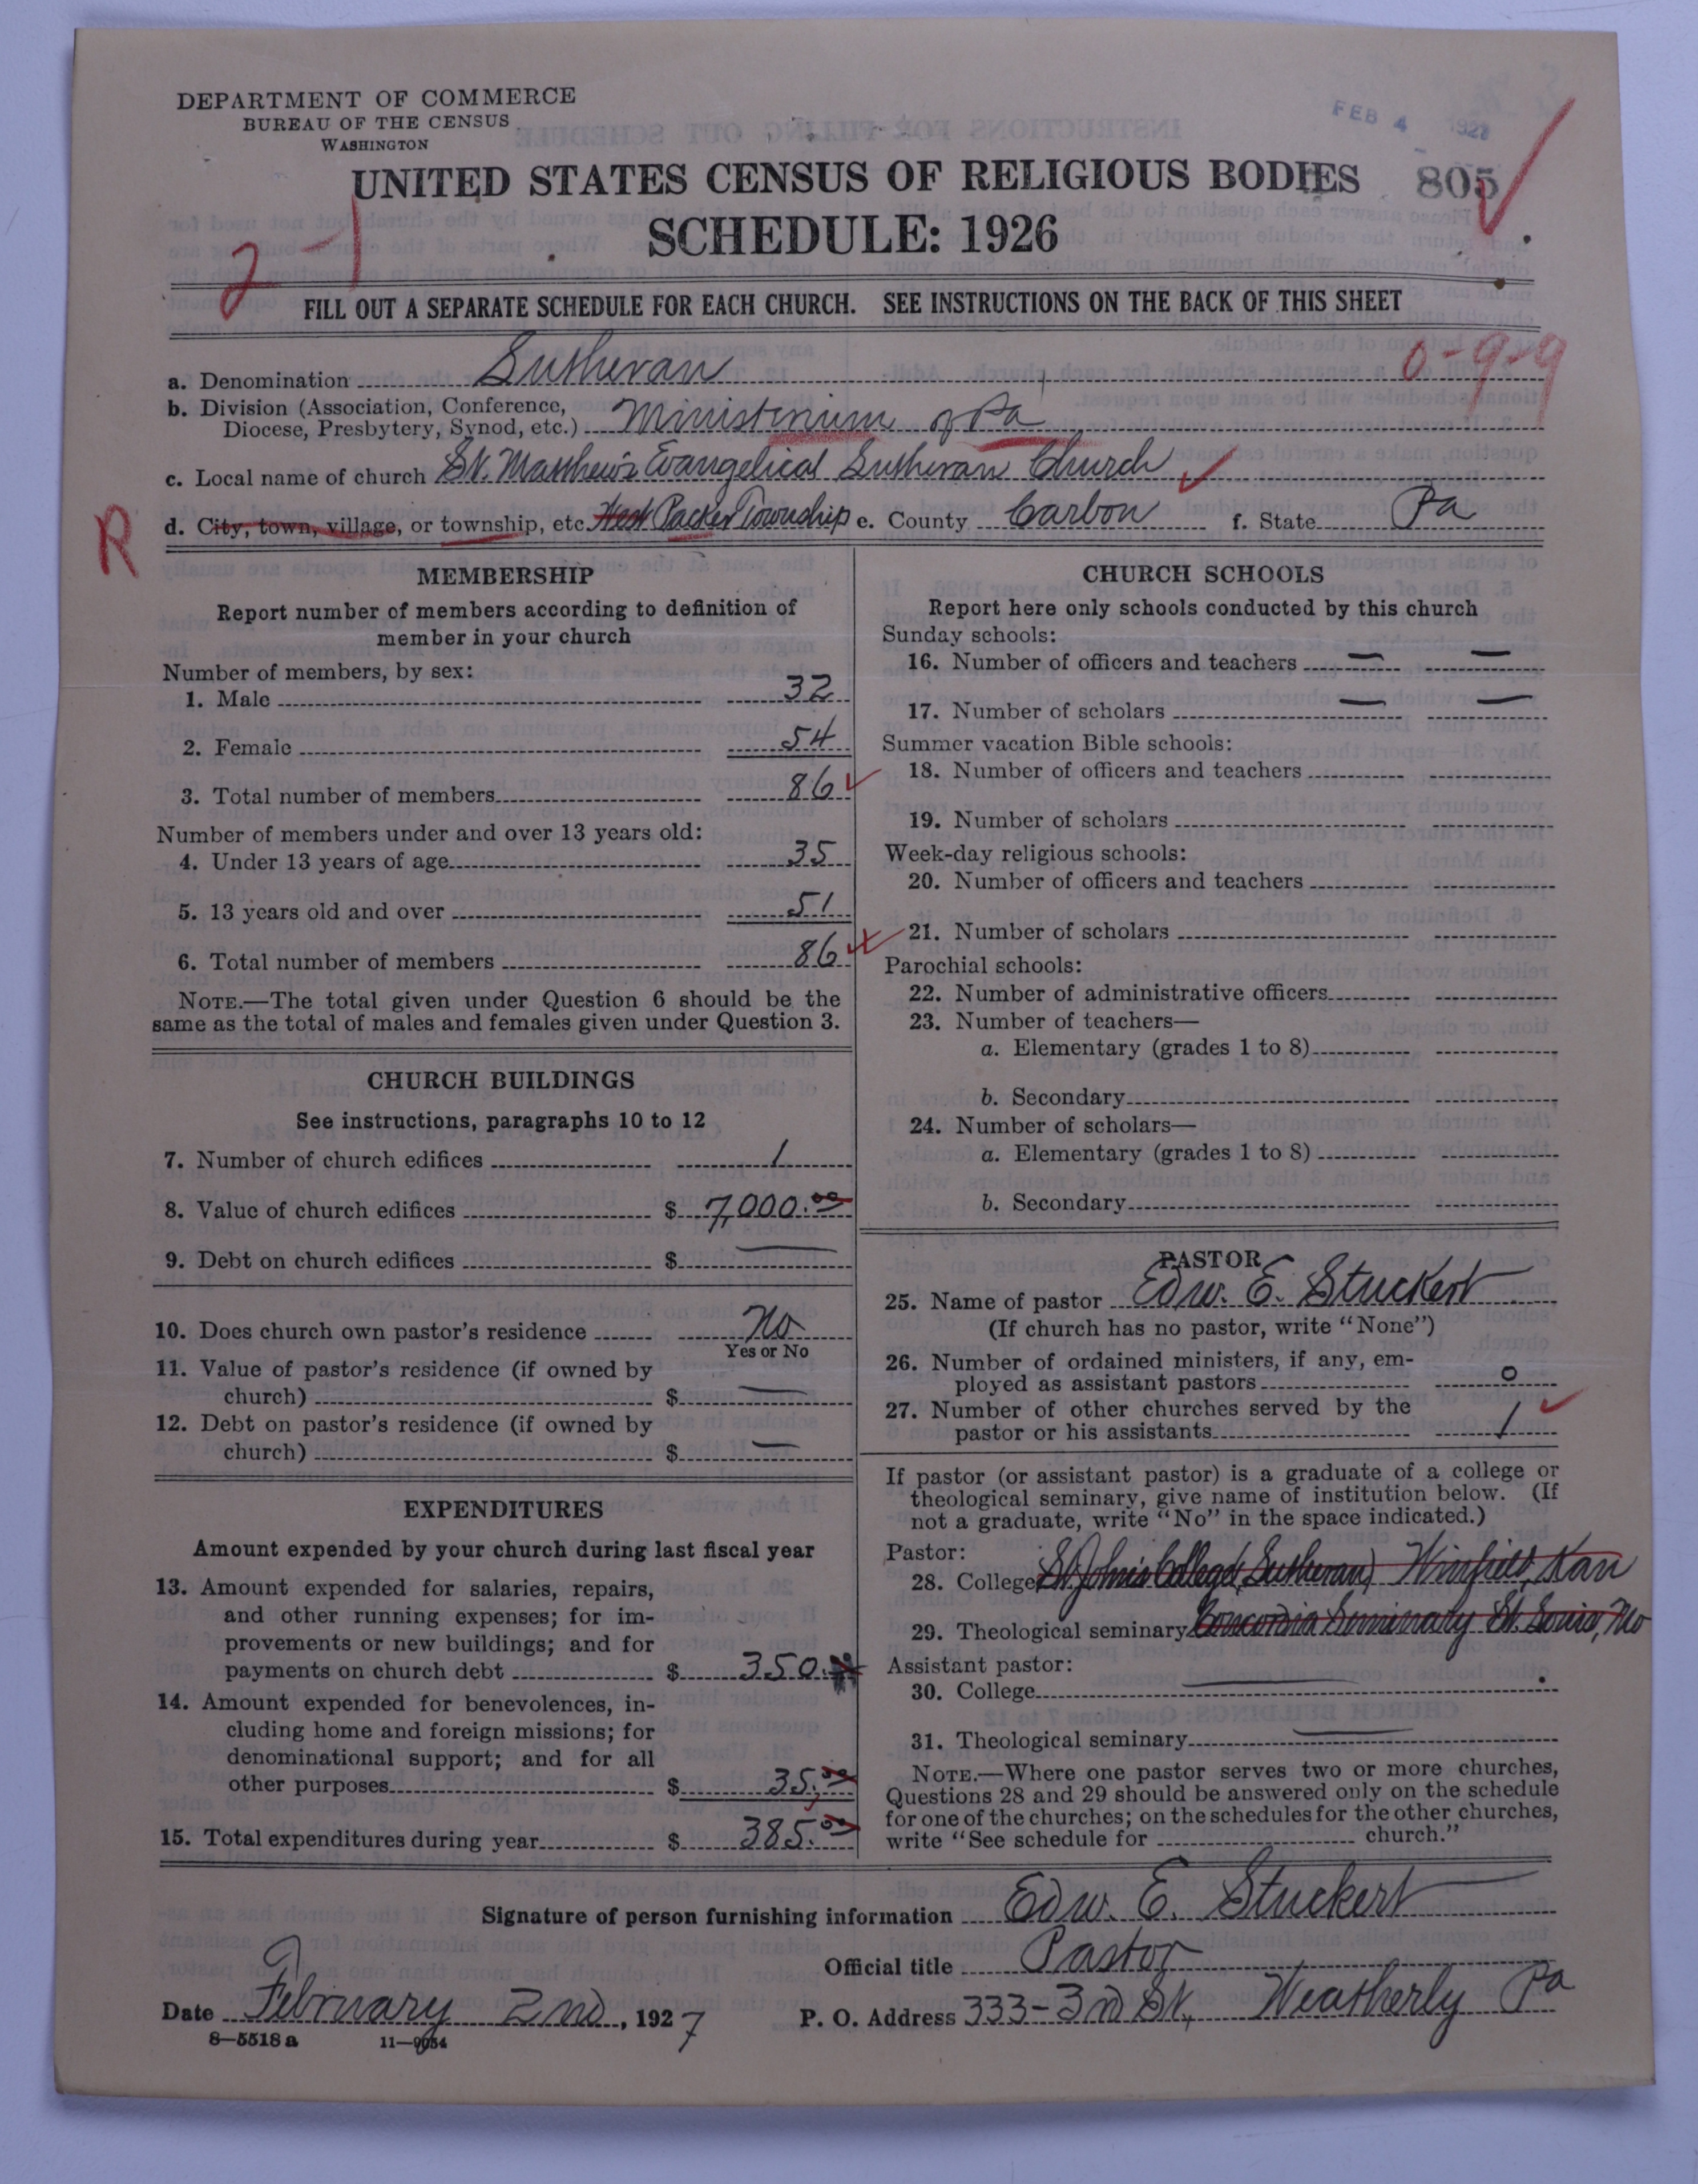 DEPARTMENT OF COMMERCE
BUREAU OF THE CENSUS
WASHINGTON
FEB 4 1928
UNITED STATES CENSUS OF RELIGIOUS BODIES 805
SCHEDULE: 1926
2-1
FILL OUT A SEPARATE SCHEDULE FOR EACH CHURCH. SEE INSTRUCTIONS ON THE BACK OF THIS SHEET
0-9-9
a. Denomination Lutheran
b. Division (Association, Conference,
Diocese, Presbytery, Synod, etc.) Ministerium of Pa
c. Local name of church St. Matthew's Evangelical Lutheran Church
R
d. City, town, village, or township, etc. Packer Township e. County Carbon f. State Pa
MEMBERSHIP
Report number of members according to definition of
member in your church
Number of members, by sex:
1. Male 32
2. Female 54
3. Total number of members 86
Number of members under and over 13 years old:
4. Under 13 years of age 35
5. 13 years old and over 51
6. Total number of members 86
NOTE.—The total given under Question 6 should be the
same as the total of males and females given under Question 3.
CHURCH BUILDINGS
See instructions, paragraphs 10 to 12
7. Number of church edifices 1
8. Value of church edifices $ 7,000.00
9. Debt on church edifices $ —
10. Does church own pastor's residence No
Yes or No
11. Value of pastor's residence (if owned by
church) $ —
12. Debt on pastor's residence (if owned by
church) $ —
EXPENDITURES
Amount expended by your church during last fiscal year
13. Amount expended for salaries, repairs,
and other running expenses; for im-
provements or new buildings; and for
payments on church debt $ 350.
14. Amount expended for benevolences, in-
cluding home and foreign missions; for
denominational support; and for all
other purposes $ 35.00
15. Total expenditures during year $ 385.00
CHURCH SCHOOLS
Report here only schools conducted by this church
Sunday schools:
16. Number of officers and teachers — —
17. Number of scholars — —
Summer vacation Bible schools:
18. Number of officers and teachers
19. Number of scholars
Week-day religious schools:
20. Number of officers and teachers
21. Number of scholars
Parochial schools:
22. Number of administrative officers
23. Number of teachers—
a. Elementary (grades 1 to 8)
b. Secondary
24. Number of scholars—
a. Elementary (grades 1 to 8)
b. Secondary
PASTOR
25. Name of pastor Edw. E. Stuckert
(If church has no pastor, write "None")
26. Number of ordained ministers, if any, em-
ployed as assistant pastors 0
27. Number of other churches served by the
pastor or his assistants 1
If pastor (or assistant pastor) is a graduate of a college or
theological seminary, give name of institution below. (If
not a graduate, write "No" in the space indicated.)
Pastor:
28. College St. John's College (Lutheran) Winfield, Kan
29. Theological seminary Concordia Seminary St. Louis, Mo
Assistant pastor:
30. College —
31. Theological seminary —
NOTE.—Where one pastor serves two or more churches,
Questions 28 and 29 should be answered only on the schedule
for one of the churches; on the schedules for the other churches,
write "See schedule for church."
Signature of person furnishing information Edw. E. Stuckert
Official title Pastor
Date February 2nd, 1927 P. O. Address 333-3rd St, Weatherly Pa
8—5518 a 11—9054